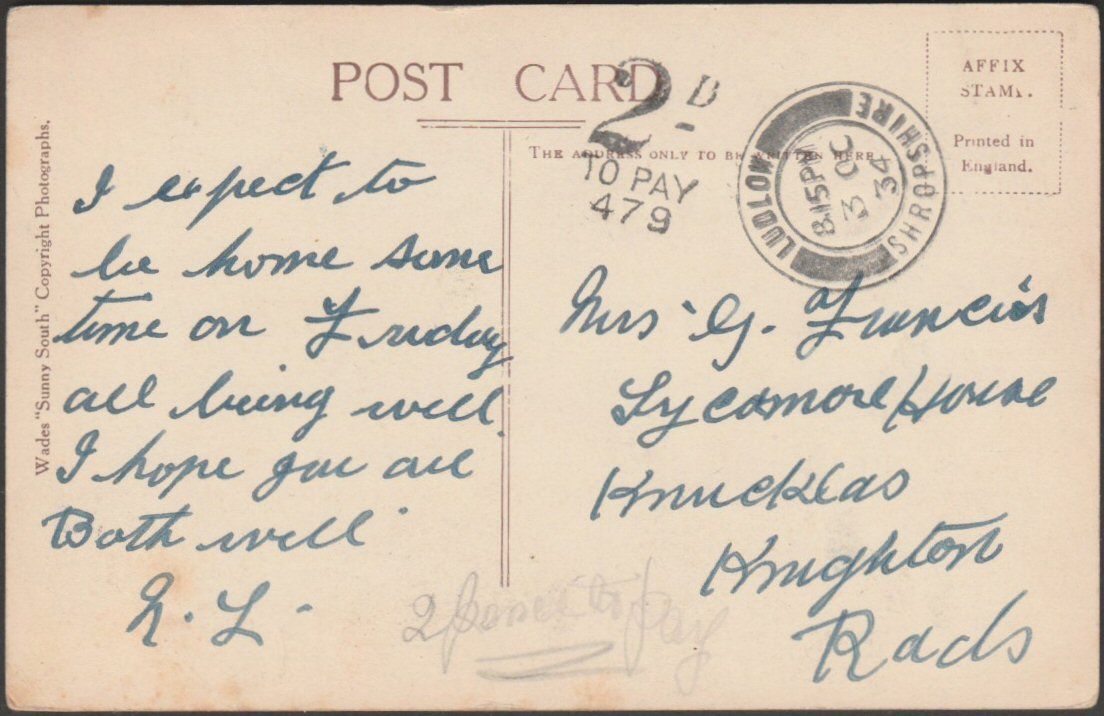 POST CARD
2D
TO PAY
479
LUDLOW
SHROPSHIRE
8.15PM
3 OC
34
AFFIX
STAMP.
Printed in
England.
THE ADDRESS ONLY TO BE WRITTEN HERE
Wades "Sunny South" Copyright Photographs.
I expect to
be home some
time on Friday
all being well.
I hope you are
Both well
L.
Mrs G. Francis
Sycamore House
Knucklas
Knighton
Rads
2 pence to pay